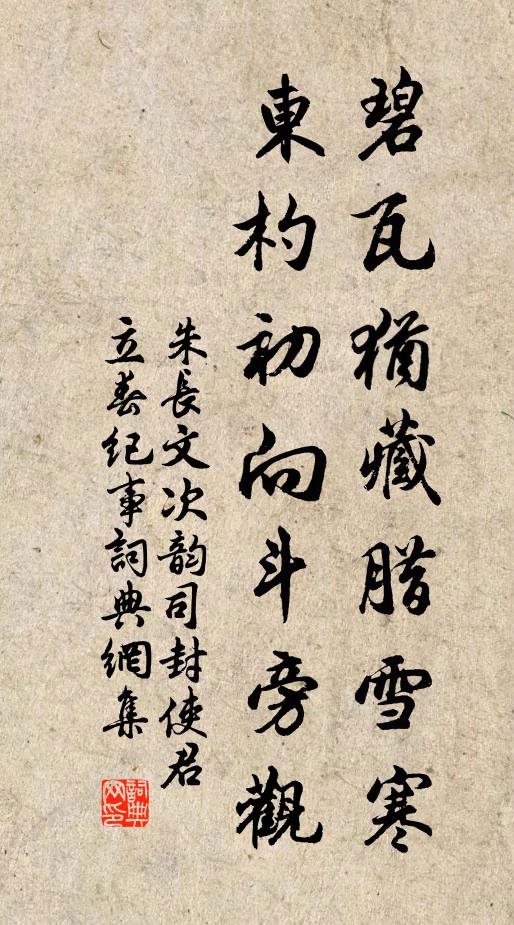 碧瓦猶藏腊雪寒
東杓初向斗旁觀
朱長文次韵司封使君
立春纪事詞典網集
詞典网印